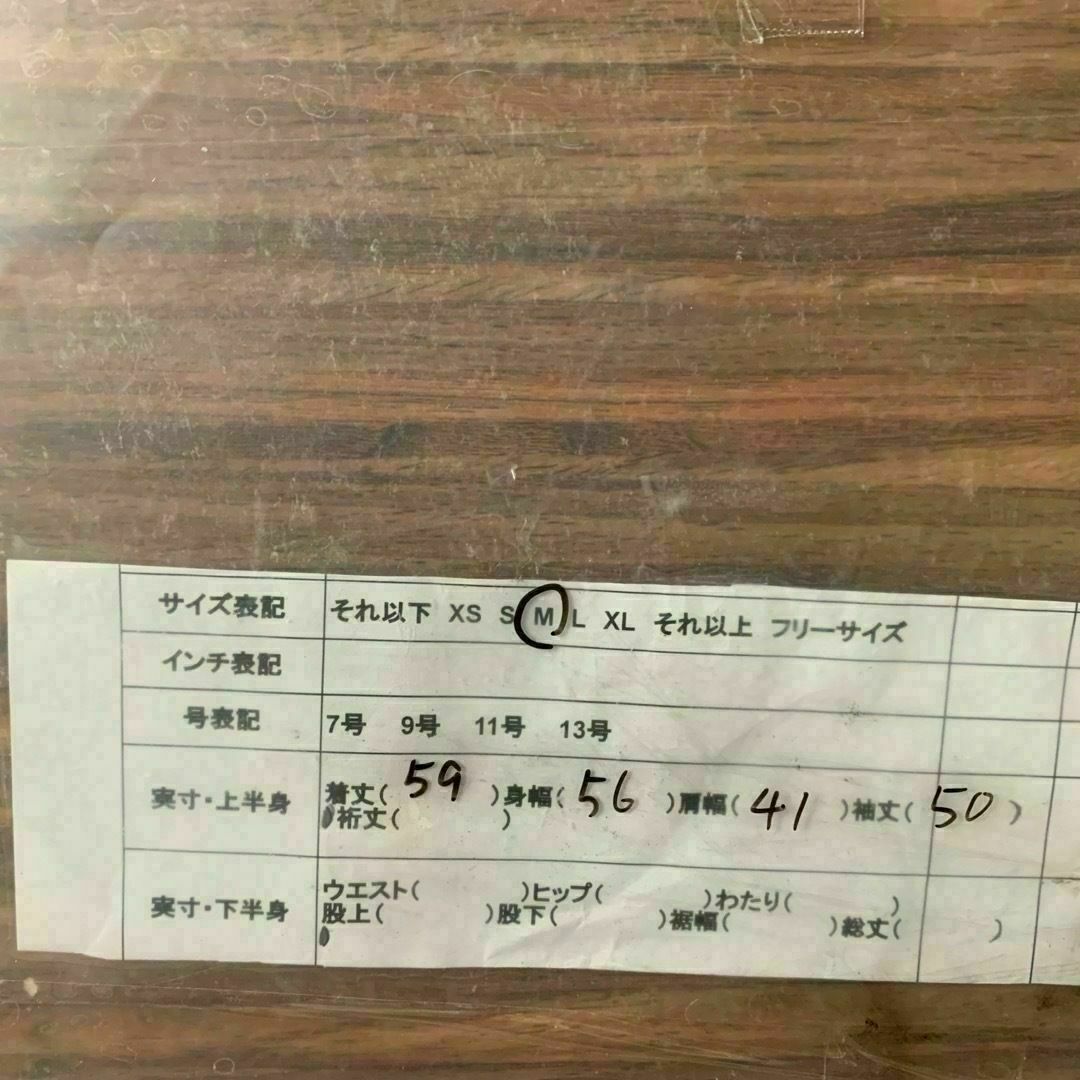 サイズ表記 それ以下 XS S M L XL それ以上 フリーサイズ
インチ表記
号表記 7号 9号 11号 13号
実寸・上半身 着丈( 59 )身幅( 56 )肩幅( 41 )袖丈( 50 )
裄丈( )
実寸・下半身 ウエスト( )ヒップ( )わたり( )
股上( )股下( )裾幅( )総丈( )